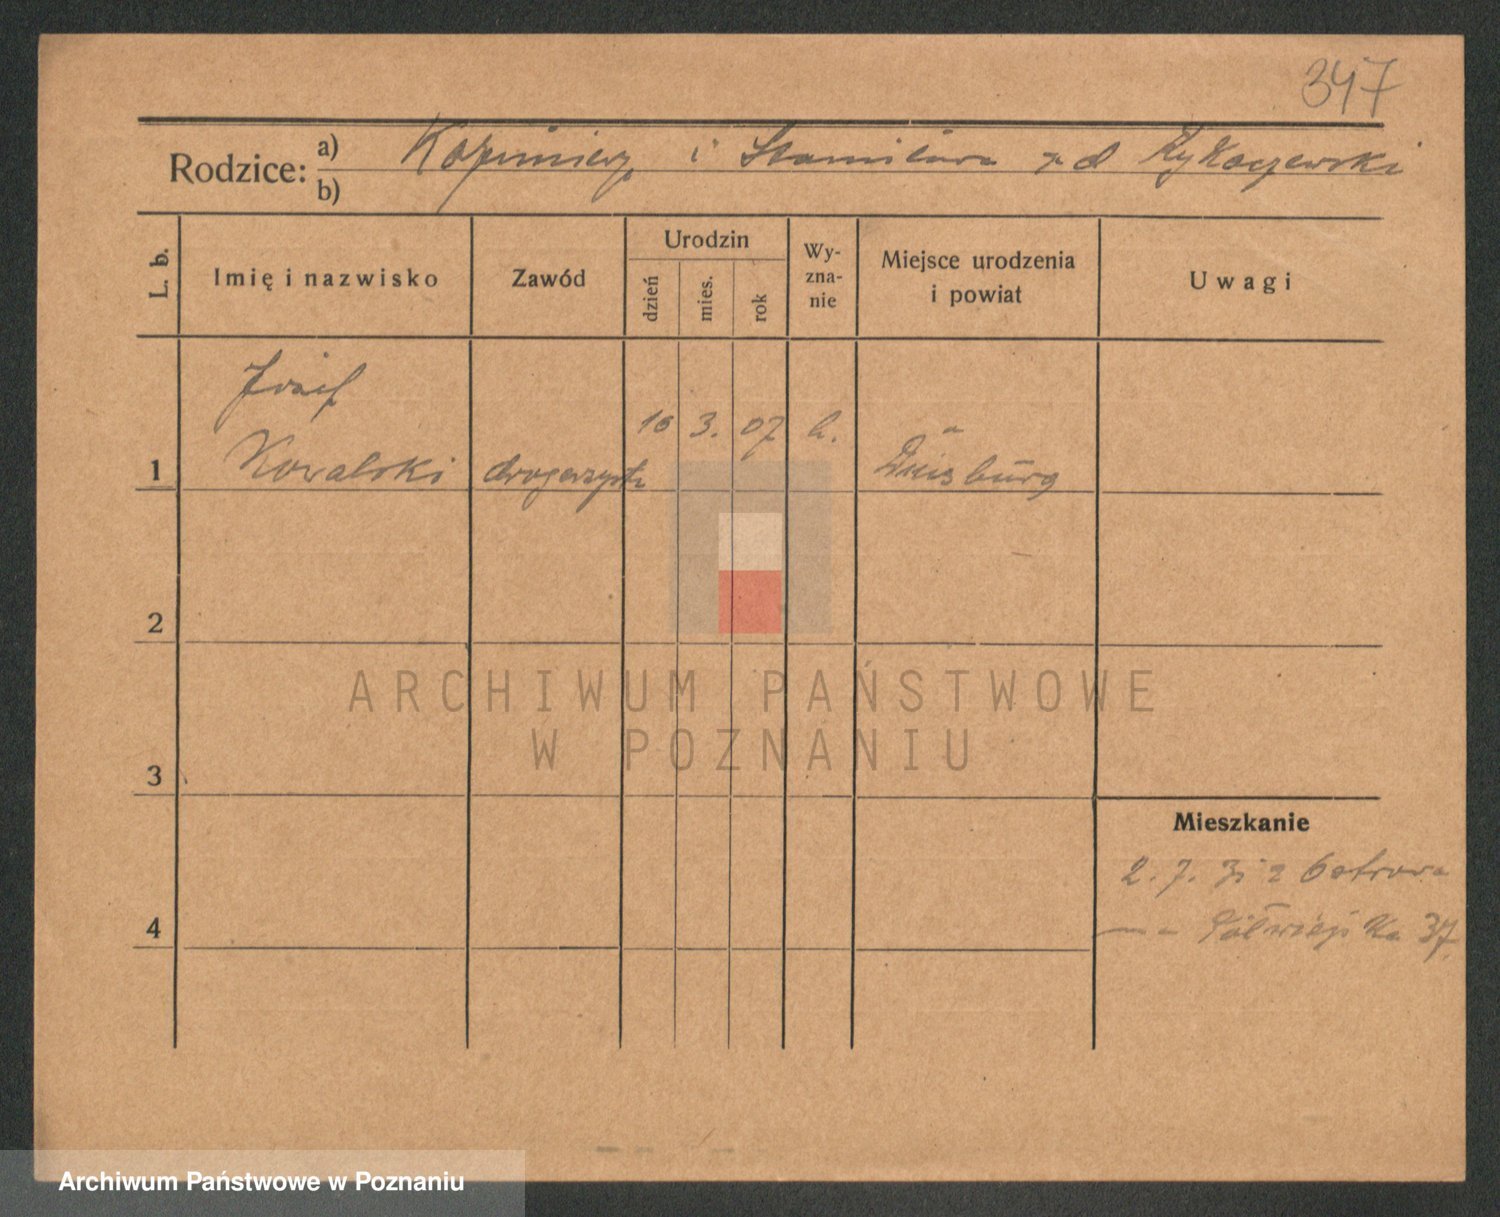 347
Rodzice: a) Kazimierz i Stanisława z d Rykaczewski
b)
L. b.
Imię i nazwisko
Zawód
Urodzin
dzień
mies.
rok
Wy-
zna-
nie
Miejsce urodzenia
i powiat
Uwagi
Józef
1 Kowalski drogerzysta 16 3. 07 k. Duisburg
2
3
4
Mieszkanie
2. 7. 31 z Ostrowa
Półwiejska 37.
ARCHIWUM PAŃSTWOWE
W POZNANIU
Archiwum Państwowe w Poznaniu